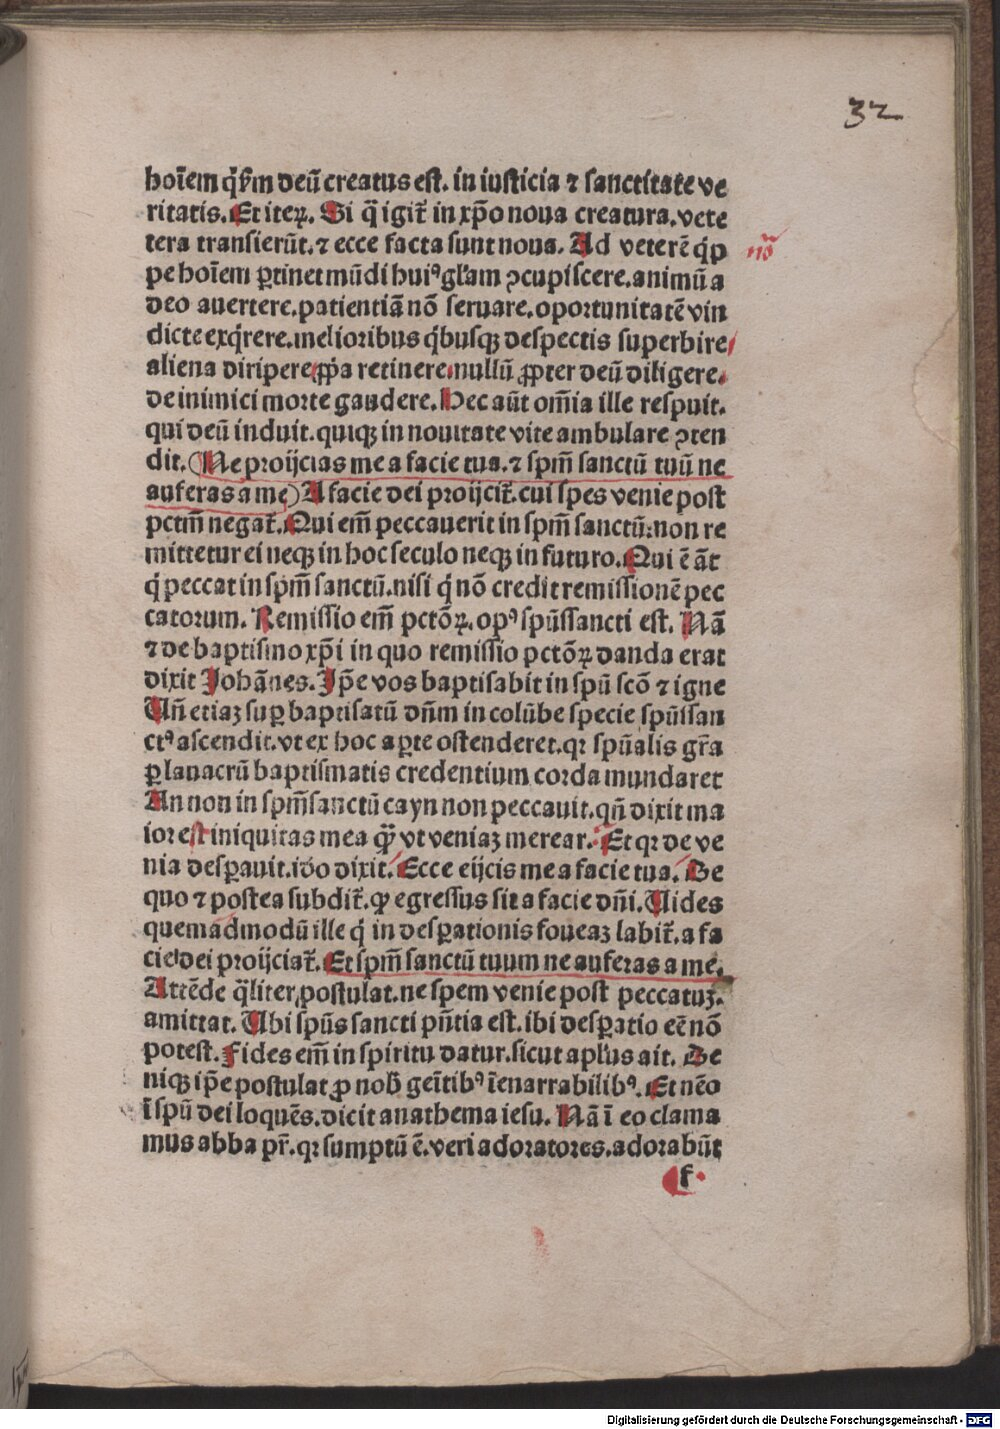 32
hoīem q̇ ẜm deū creatus est. in iusticia ⁊ sanctitate ve
ritatis. Et iteꝝ. Si q̄ igit̄ in xp̄o noua creatura. vete
tera transierūt. ⁊ ecce facta sunt noua. Ad veterē q̇ꝑ
nō
pe hoīem ꝑtinet mūdi huiꝰ gl'am ꝯcupiscere. animū a
deo auertere. patientiā nō seruare. oportunitatē vin
dicte exq̇rere. melioribus q̇busqꝫ despectis superbire
aliena diripere. ꝓp̄a retinere. nullū ꝓpter deū diligere.
de inimici morte gaudere. Hec aūt om̄ia ille respuit.
qui deū induit. quiqꝫ in nouitate vite ambulare ꝯten
dit. (Ne proijcias me a facie tua. ⁊ sp̄m sanctū tuū ne
auferas a me) A facie dei proijcit̄. cui spes venie post
pctm̄ negat̄. Qui em̄ peccauerit in sp̄m sanctū: non re
mittetur ei neqꝫ in hoc seculo neqꝫ in futuro. Qui ē āt
q̇ peccat in sp̄m sanctū. nisi q̇ nō credit remissionē pec
catorum. Remissio em̄ pctōꝝ. opꝰ spūssancti est. Nā
⁊ de baptismo xp̄i in quo remissio pctōꝝ danda erat
dixit Johānes. Ip̄e vos baptisabit in spū scō ⁊ igne
Un̄ etiaꝫ suꝑ baptisatū dn̄m in colūbe specie spūssan
ctꝰ ascendit. vt ex hoc aꝑte ostenderet. qꝛ spūalis gr̄a
ꝑ lauacrū baptismatis credentium corda mundaret
An non in sp̄m sanctū cayn non peccauit. qn̄ dixit ma
ior est iniquitas mea qꝫ̄ vt veniaꝫ merear. Et qꝛ de ve
nia desꝑauit. iđo dixit. Ecce eijcis me a facie tua. De
quo ⁊ postea subdit̄. ꝙ egressus sit a facie dn̄i. Uides
quemadmodū ille q̇ in desꝑationis foueaꝫ labit̄. a fa
cie dei proijciat̄. Et sp̄m sanctū tuum ne auferas a me.
Attēde q̄liter postulat. ne spem venie post peccatuꝫ.
amittat. Ubi spūs sancti pn̄tia est. ibi desꝑatio eē nō
potest. Fides em̄ in spiritu datur. sicut apl'us ait. De
niqꝫ ip̄e postulat ꝓ nob̄ geītibꝰ īenarrabilibꝰ. Et nēo
ī spū dei loquēs. dicit anathema iesu. Nā ī eo clama
mus abba pr̄. qꝛ sumptū ē. veri adoratores. adorabūt
f
Digitalisierung gefördert durch die Deutsche Forschungsgemeinschaft - DFG